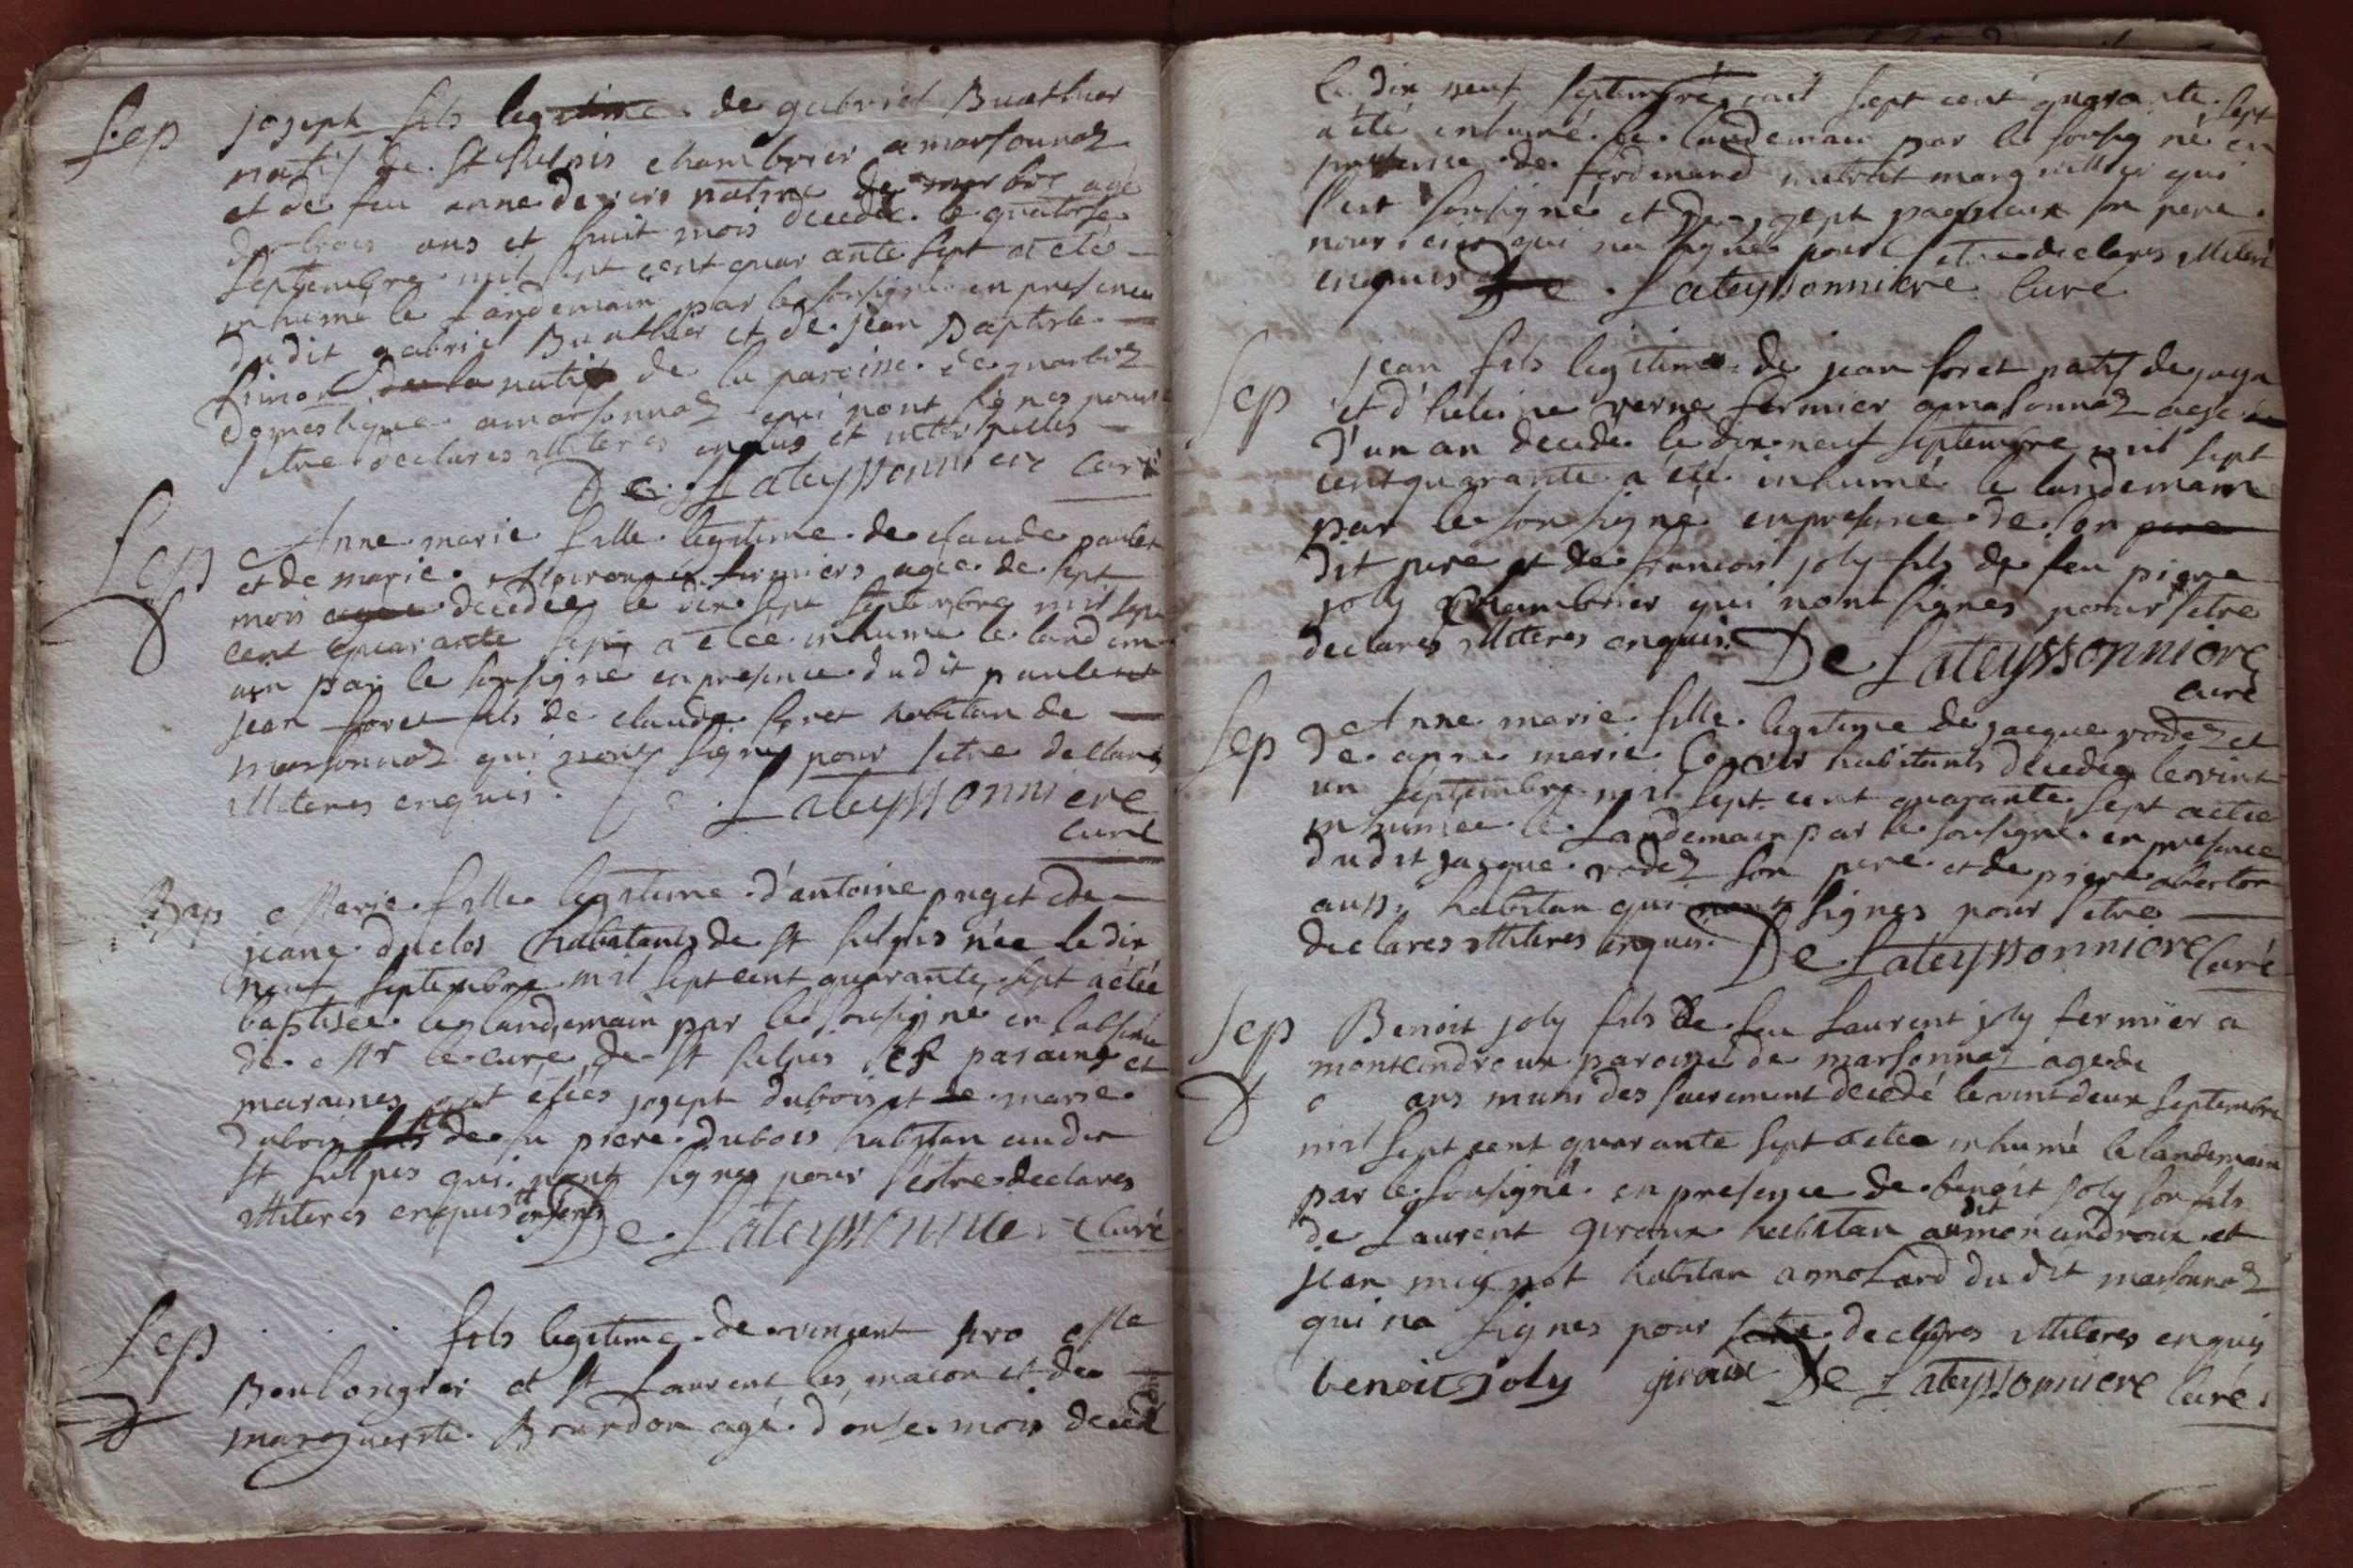 Sep joseph fils legitime de gabriel Buathier
natif de St sulpis chambrier a marsonnaz
et de feu anne deviers native de marboz agé
de trois ans et huit mois decedé le quatorse
septembre mil sept cent quarante sept a eté
inhumé le landemain par le sousigné en presence
dudit gabriel Buathier et de jean Baptiste
simon natif de la paroisse de marboz
domestique a marsonnaz qui nont signes pour
setre declares illiteres enquis et interpellés
De Lateyssonniere curé
Sep Anne marie fille legitime de claude paulet
et de marie fermiers agée de sept
mois decedée le dix sept septembre mil sept
cent quarante sept a etée inhumé le landem
ain par le sousigné en presence dudit paulet et
jean foret fils de claude foret habitan de
marsonnaz qui nont signes pour setre declares
illiteres enquis. De Lateyssonniere
curé
Bap Marie fille legitime d'antoine puget et de
jeane duclos habitants de St sulpis née le dix
neuf septembre mil sept cent quarante sept a étée
baptisée le landemain par le sousigné en l'absence
de Mr le curé de St sulpis ses parains et
maraines ont étées josept dubois et marie
dubois de fu piere dubois habitan audit
St sulpis qui nont signes pour s'estre declares
illiteres enquis De Lateyssonniere curé
Sep fils legitime de vincent
Boulongier et St Laurent les macon et de
marguerite Bourdon agé d'onse mois decedé
le dix neuf septembre mil sept cent quarante sept
a été inhumé le landemain par le sousigné en
presence de ferdinand mutrut marguillier qui
s'est sousigné et de josept pagneux son pere
nouricier qui na signé pour setre declares illiteré
enquis De Lateyssonniere curé
Sep jean fils legitime de jean foret natif de jaya
et d'heleine verne fermier a marsonnaz agé
d'un an decedé le dix neuf septembre mil sept
cent quarante a été inhumé le landemain
par le sousigné en presence de son pere
dit pere et de francois joly fils de feu piere
joly chambrier qui nont signes pour setre
declares illiteres enquis. De Lateyssonniere
curé
Sep Anne marie fille legitime de jacque rodez et
de anne marie habitants decedée le vint
un septembre mil sept cent quarante sept a etée
inhumée le landemain par le sousigné en presence
dudit jacque rodez son pere et de piere
aussi habitan qui nont signes pour setre
declares illiteres enquis. De Lateyssonniere
curé
Sep Benoit joly fils de feu Laurent joly fermier a
montandroux paroisse de marsonnaz age de
ans muni des sacrement decedé le vint deux septembre
mil sept cent quarante sept a etée inhumé le landemain
par le sousigné en presence de benoit joly son fils
de Laurent giroux habitan audit monandroux et
jean mignot habitan a dudit marsonnaz
qui na signes pour setre declares illiteres enquis
benoit joly giroux De Lateyssonniere curé.